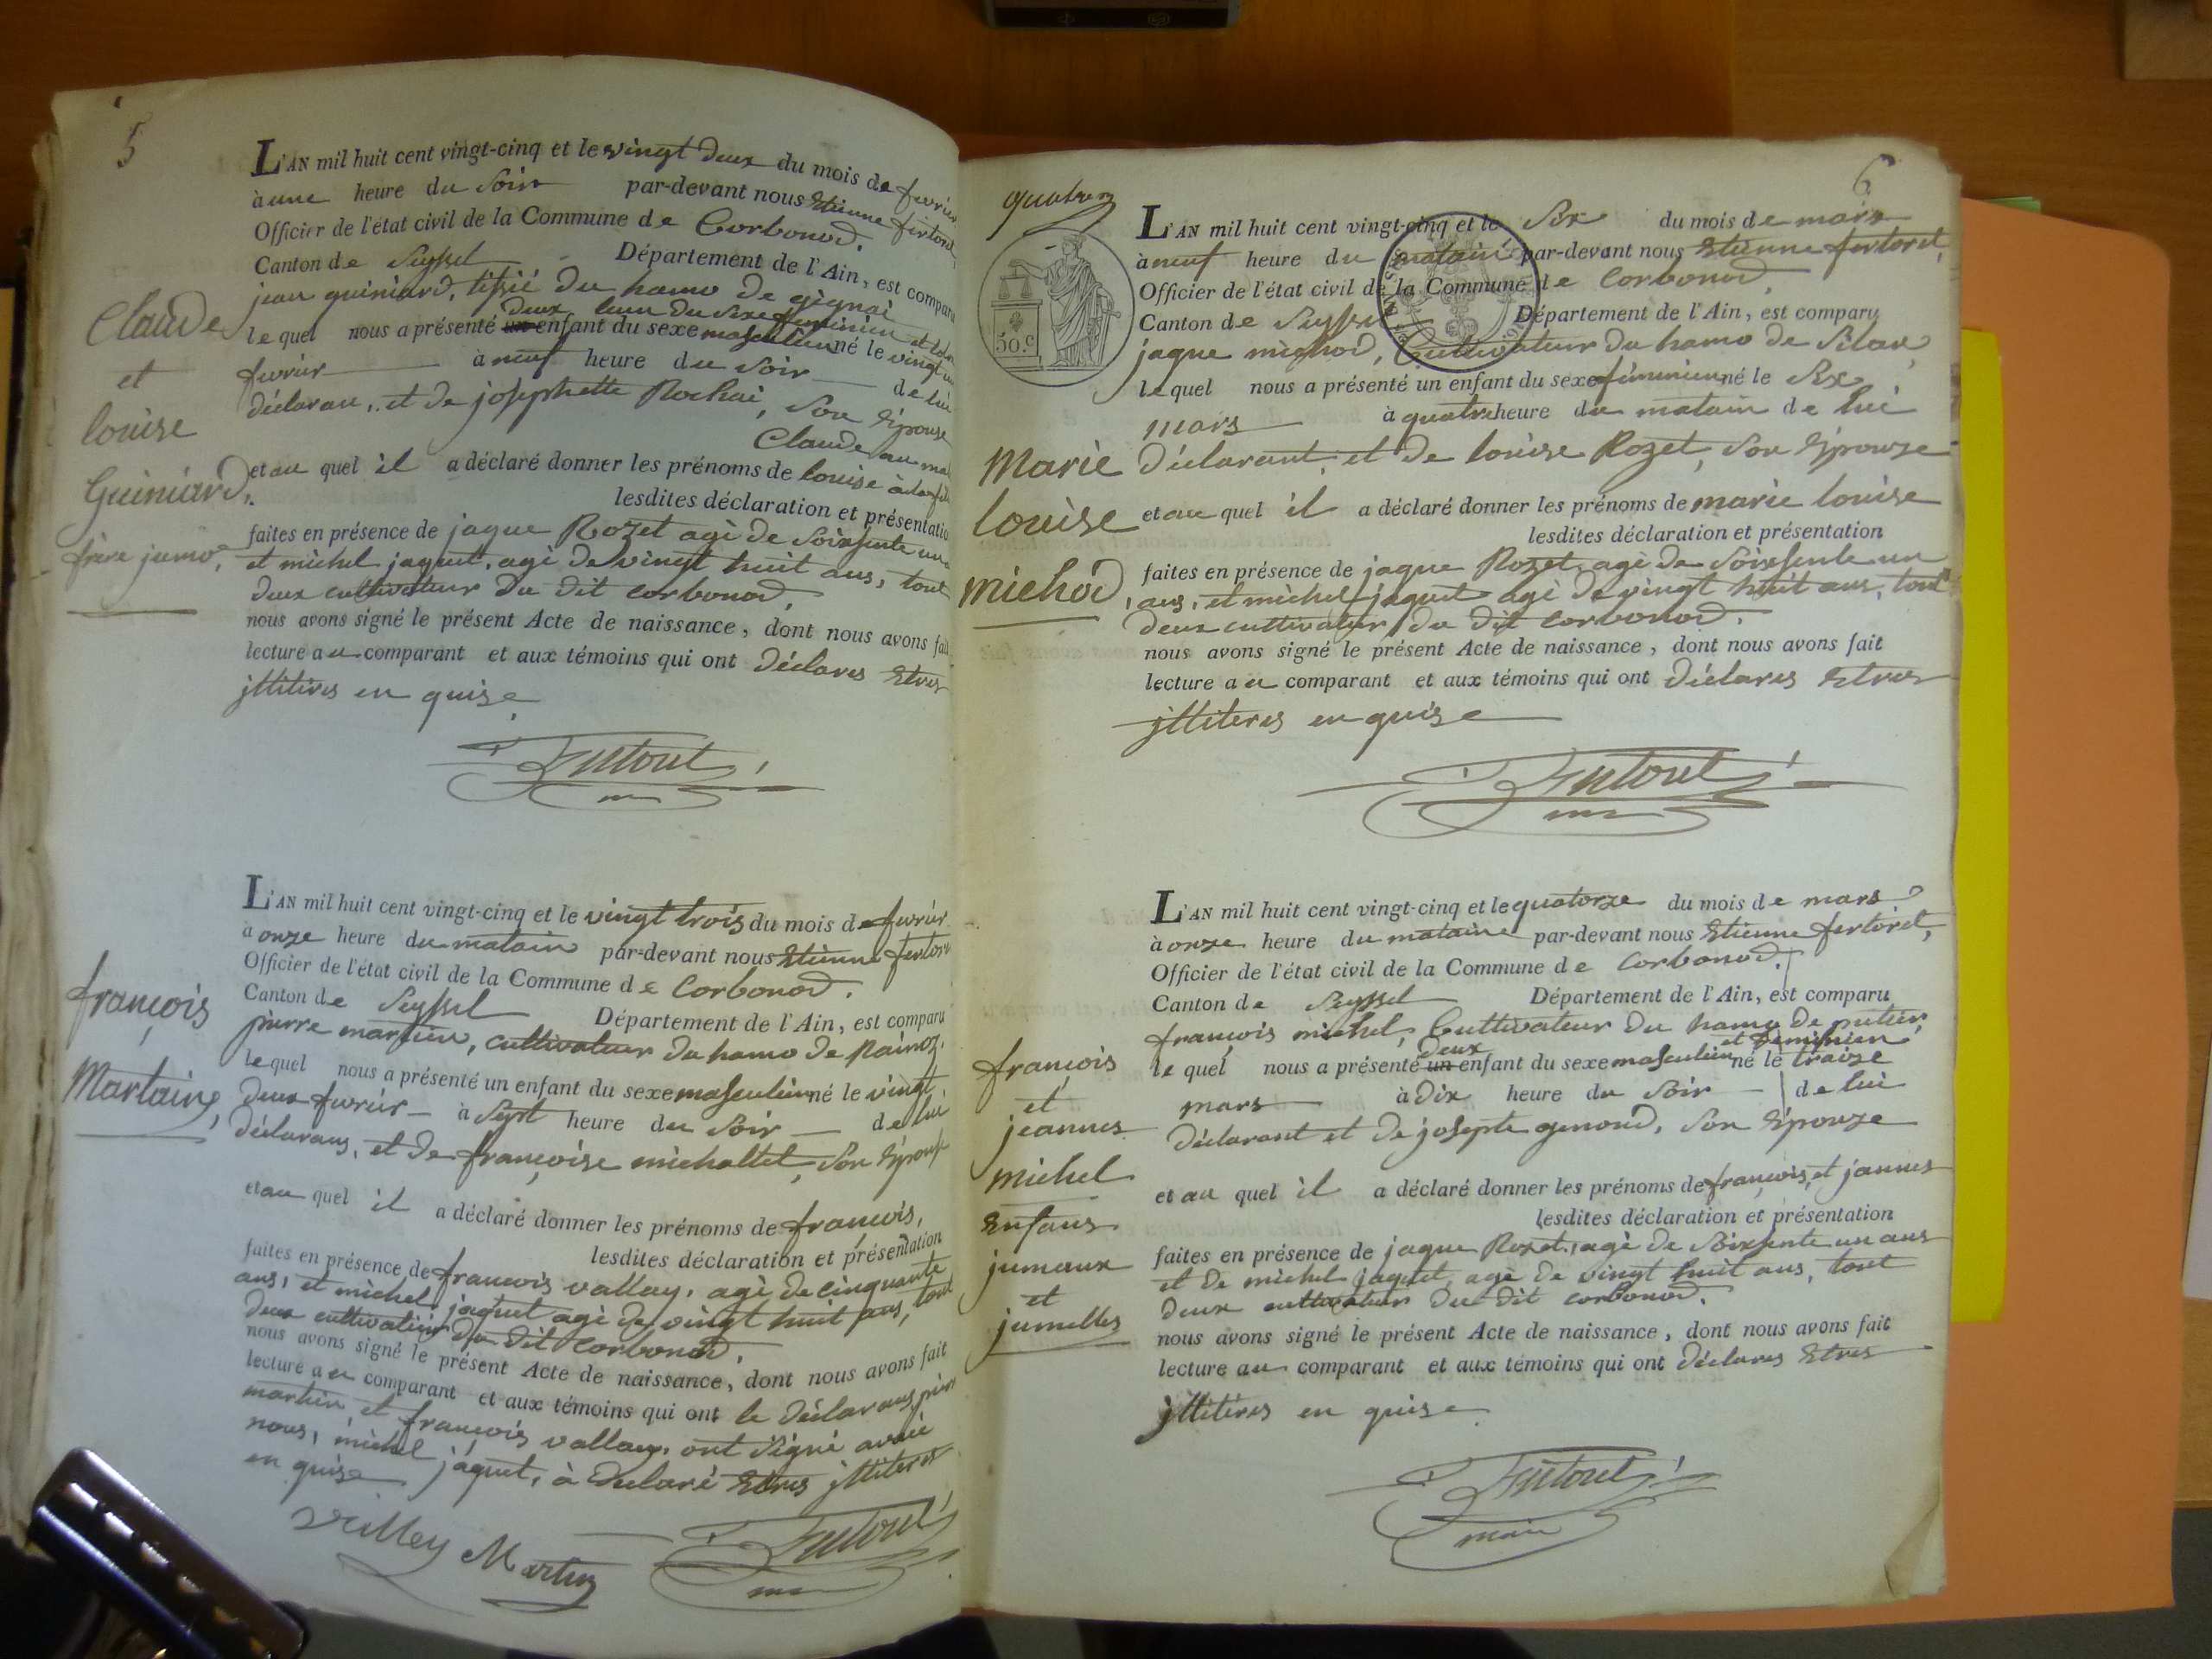 5
L'AN mil huit cent vingt-cinq et le vingt deux du mois de fevrier
à une heure du Soir par-devant nous Etienne fertoret,
Officier de l'état civil de la Commune de Corbonod.
Canton de Seyssel Département de l'Ain, est comparu
jean guiniard, du hamo de
deux, lun du Sexe feminien et
le quel nous a présenté un enfant du sexe masculien né le vingt un
fevrier à neuf heure du Soir de lui
déclaran, et de josephette Rochai, Son Epouse
Claude au
et au quel il a déclaré donner les prénoms de louise
lesdites déclaration et présentation
faites en présence de jaque Rozet agè de Soixsente un
et michel jaquet, agè de vingt huit ans, tout
deux cultivateur du dit corbonod,
nous avons signé le présent Acte de naissance, dont nous avons fait
lecture au comparant et aux témoins qui ont déclares Etres
jlliteres en quise
Claude
et
louise
Guiniard,
frère jumo,
fertoret
L'AN mil huit cent vingt-cinq et le vingt trois du mois de fevrier
à onze heure du matain par-devant nous Etienne fertoret
Officier de l'état civil de la Commune de Corbonod.
Canton de Seyssel Département de l'Ain, est comparu
pierre martien, cultivateur du hamo de
le quel nous a présenté un enfant du sexe masculien né le vingt
deux fevrier à Sept heure du Soir de lui
déclarans, et de françoise michallet, Son Epouse
et au quel il a déclaré donner les prénoms de françois,
lesdites déclaration et présentation
faites en présence de francois vallay, agè de cinquante
ans, et michel jaquet agè de vingt huit ans, tout
deux cultivateur du dit corbonod,
nous avons signé le présent Acte de naissance, dont nous avons fait
lecture au comparant et aux témoins qui ont le déclarans, pierre
martien et francois vallay, ont Signé
nous, michel jaquet, à declaré Etres jlliteres
en quise
françois
Martain,
Martin fertoret
6
quatre
50.c
L'AN mil huit cent vingt-cinq et le Six du mois de mars
à neuf heure du matain par-devant nous Etienne fertoret,
Officier de l'état civil de la Commune de Corbonod,
Canton de Seyssel Département de l'Ain, est comparu
jaque michod, Cultivateur du hamo de Silan,
le quel nous a présenté un enfant du sexe féminien né le Six
mars à quatre heure du matain de lui
déclarant, et de louise Rozet, Son Epouze
et au quel il a déclaré donner les prénoms de marie louise
lesdites déclaration et présentation
faites en présence de jaque Rozet, agè de Soixsente un
ans, et michel jaquet agè de vingt huit ans, tout
deux cultivateur du dit corbonod.
nous avons signé le présent Acte de naissance, dont nous avons fait
lecture au comparant et aux témoins qui ont déclares Etres
jlliteres en quise
Marie
louise
michod,
fertoret
L'AN mil huit cent vingt-cinq et le quatorze du mois de mars
à onze heure du mataine par-devant nous Etienne fertoret,
Officier de l'état civil de la Commune de Corbonod.
Canton de Seyssel Département de l'Ain, est comparu
françois michel, Cultivateur du hamo de
deux et feminien
le quel nous a présenté un enfant du sexe masculien né le traize
mars à dix heure du Soir de lui
déclarant et de josepte genond, Son Epouze
et au quel il a déclaré donner les prénoms de françois, et jannes
lesdites déclaration et présentation
faites en présence de jaque Rozet, agè de Soixsente un ans
et de michel jaquet, agè de vingt huit ans, tout
deux cultivateur du dit corbonod.
nous avons signé le présent Acte de naissance, dont nous avons fait
lecture au comparant et aux témoins qui ont déclares Etres
jlliteres en quise
françois
et
jeannes
michel
Enfans
jumeaux
et
jumelles
fertoret
maire